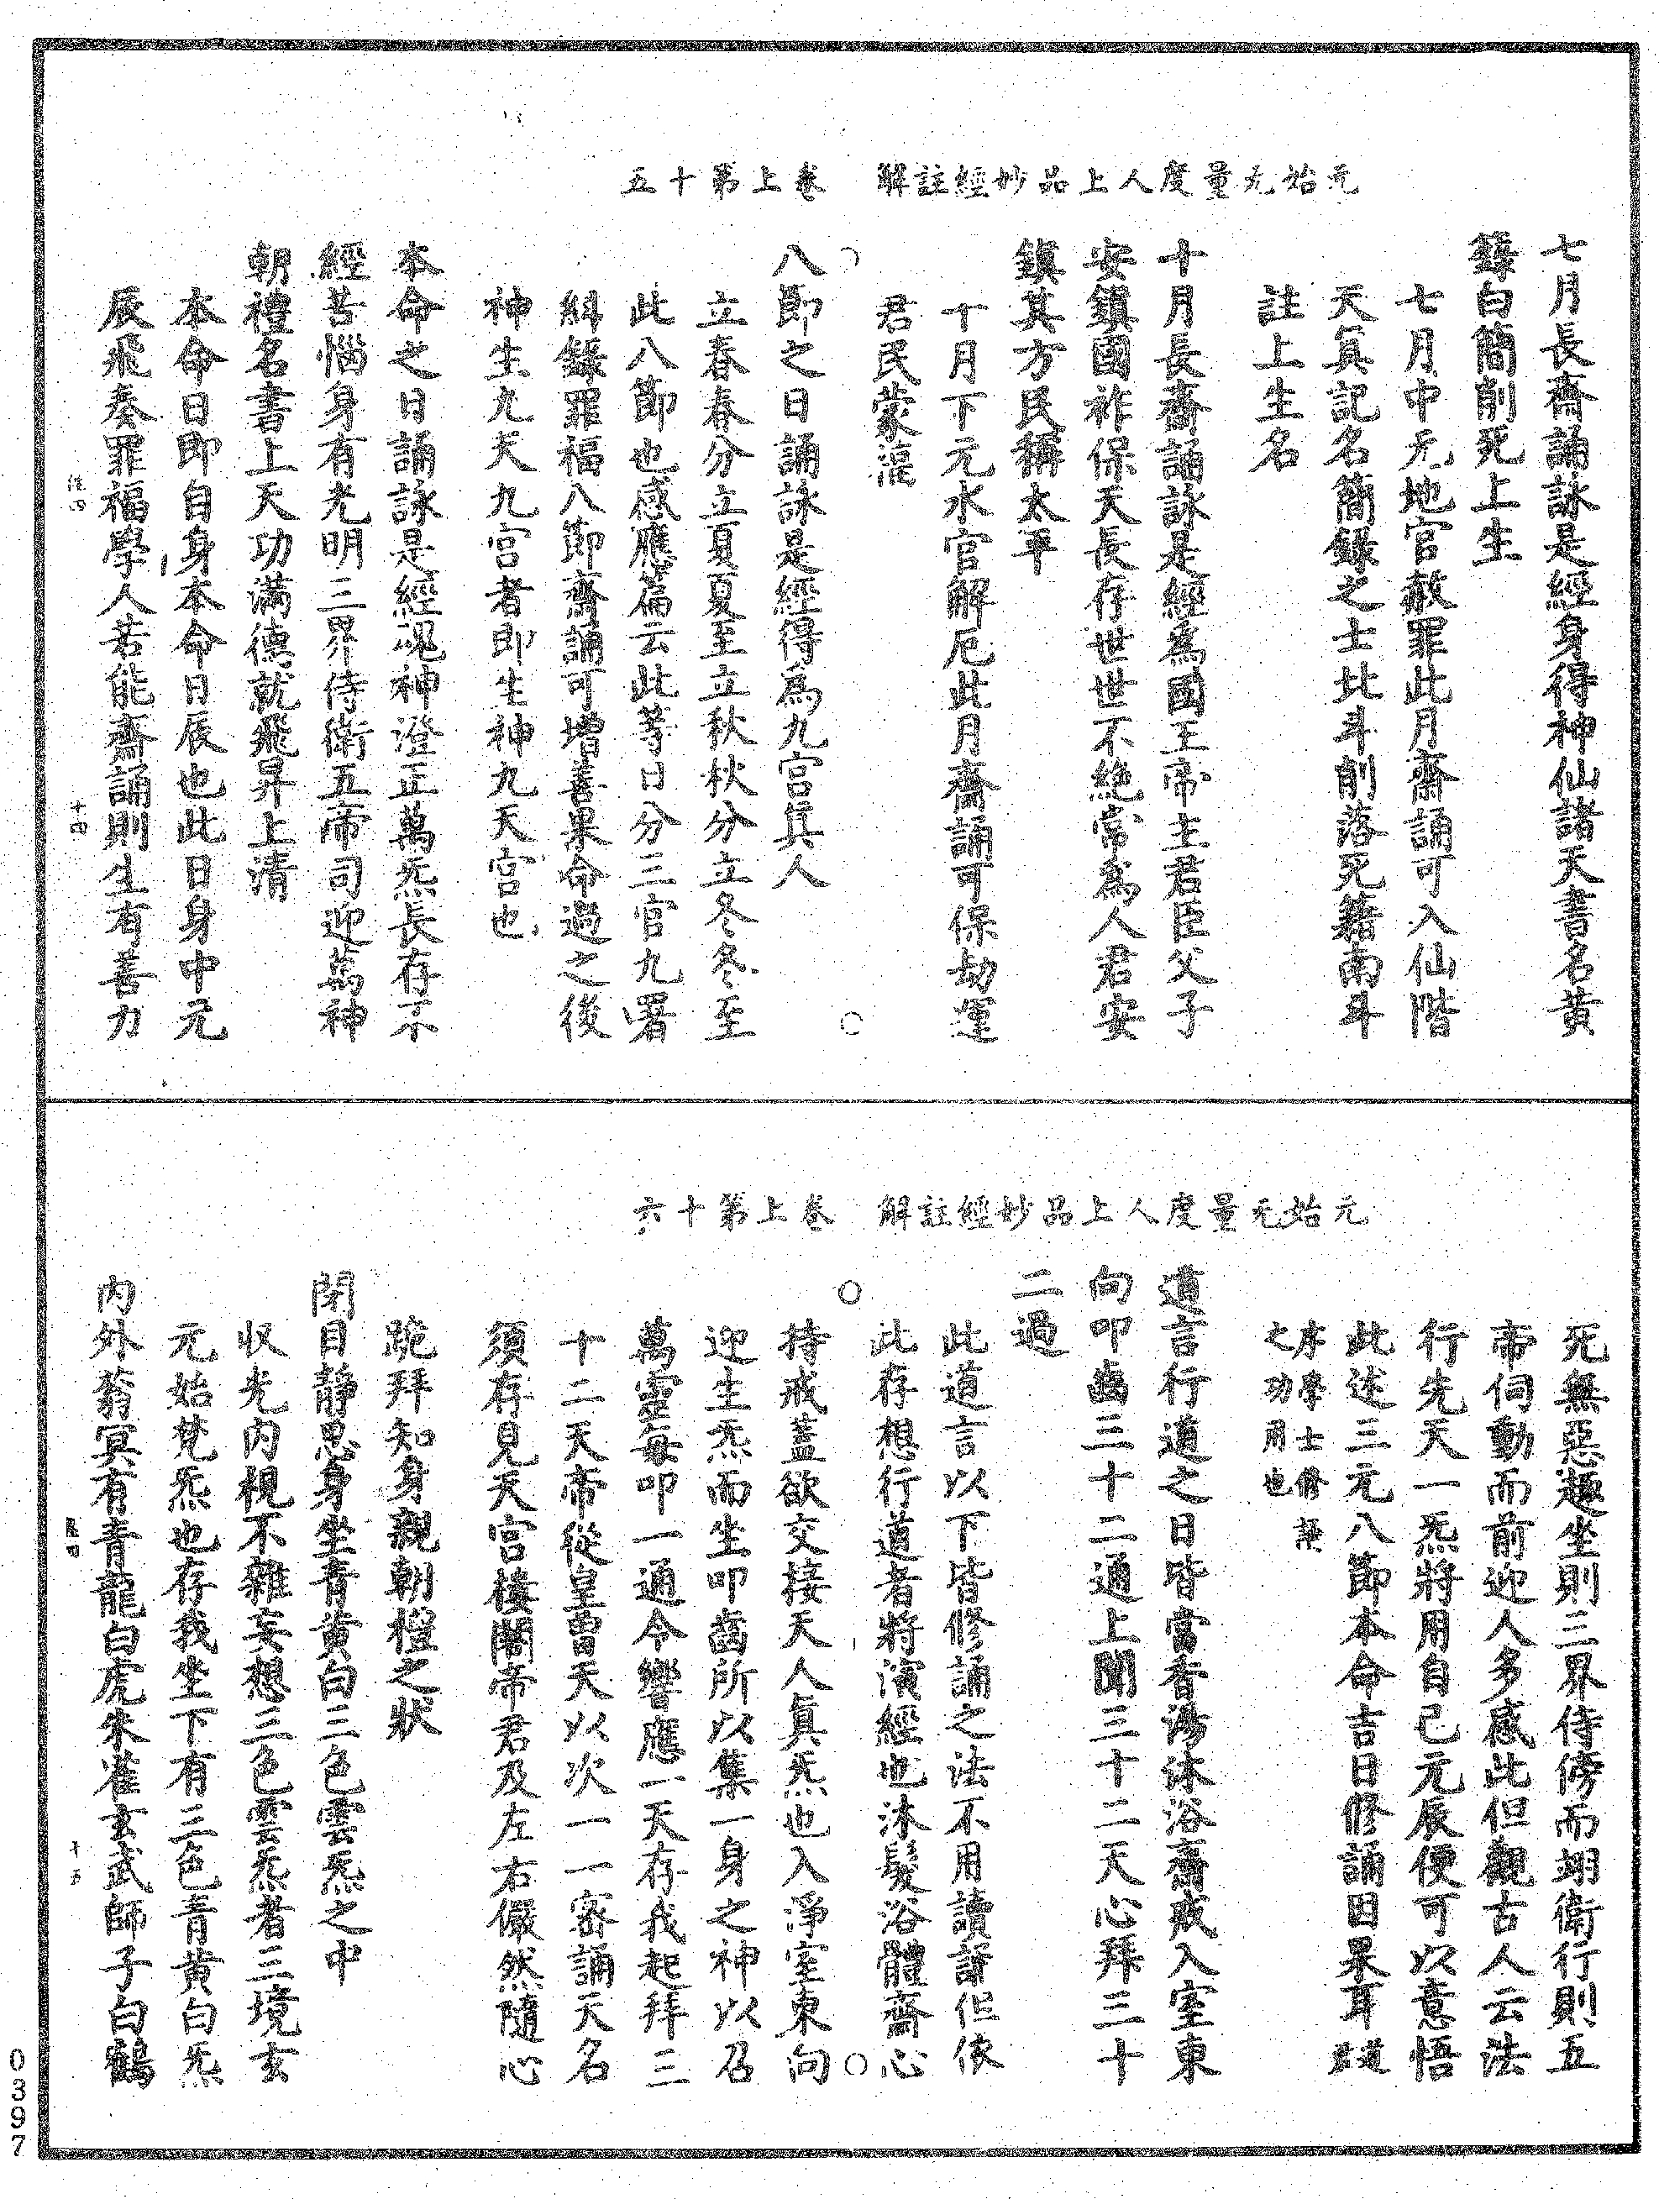 元始无量度人上品妙經註解　卷上第十五
七月長齋誦詠是經身得神仙諸天書名黃
籙白簡削死上生
七月中元地官赦罪此月齋誦可入仙階
天眞記名簡錄之士北斗削落死籍南斗
註上生名
十月長齋誦詠是經爲國王帝主君臣父子
安鎮國祚保天長存世世不絕常爲人君安
鎮其方民稱太平
十月下元水官解厄此月齋誦可保劫運
君民蒙澤
八節之日誦詠是經得爲九宮眞人
立春春分立夏夏至立秋秋分立冬冬至
此八節也感應篇云此等日分三官九署
糾錄罪福八節齋誦可增善果命過之後
神生九天九宮者即生神九天宮也
本命之日誦詠是經魂神澄正萬炁長存不
經苦惱身有光明三界侍衛五帝司迎萬神
朝禮名書上天功滿德就飛昇上清
本命日即自身本命日辰也此日身中元
辰飛奏罪福學人若能齋誦則生有善力
十四
元始无量度人上品妙經註解　卷上第十六
死無惡趣坐則三界侍傍而翊衛行則五
帝伺動而前迎人多感此但觀古人云法
行先天一炁將用自己元辰便可以意悟
此述三元八節本命吉日修誦因果耳
序學士脩誦
之功用也
道言行道之日皆當香湯沐浴齋戒入室東
向叩齒三十二通上聞三十二天心拜三十
二過
此道言以下皆修誦之法不用讀誦但依
此存想行道者將演經也沐髮浴體齋心
持戒蓋欲交接天人眞炁也入淨室東向
迎生炁而生叩齒所以集一身之神以召
萬靈每叩一通令響應一天存我起拜三
十二天帝從皇曾天以次一一密誦天名
須存見天宮樓閣帝君及左右儼然隨心
跪拜知身親朝禮之狀
閉目靜思身坐青黃白三色雲炁之中
収光內視不雜妄想三色雲炁者三境玄
元始梵炁也存我坐下有三色青黃白炁
內外蓊冥有青龍白虎朱雀玄武師子白鶴
十五
0397